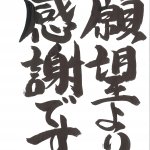 願望より
感謝です